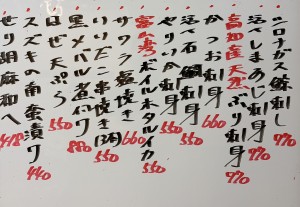 ニロナガス鯨刺し 770
活〆しまあじ刺身 770
高知産天然ぶり刺身 770
かつお刺身 660
活〆石鯛刺身 550
やりいか刺身 550
富山湾ボイルホタルイカ 550
サワラ塩焼き 660
いいだこ串焼き(2本) 550
黒メバル煮付け 880
はぜ天ぷら 550
スズキの南蛮漬け 440
せり胡麻和へ 418